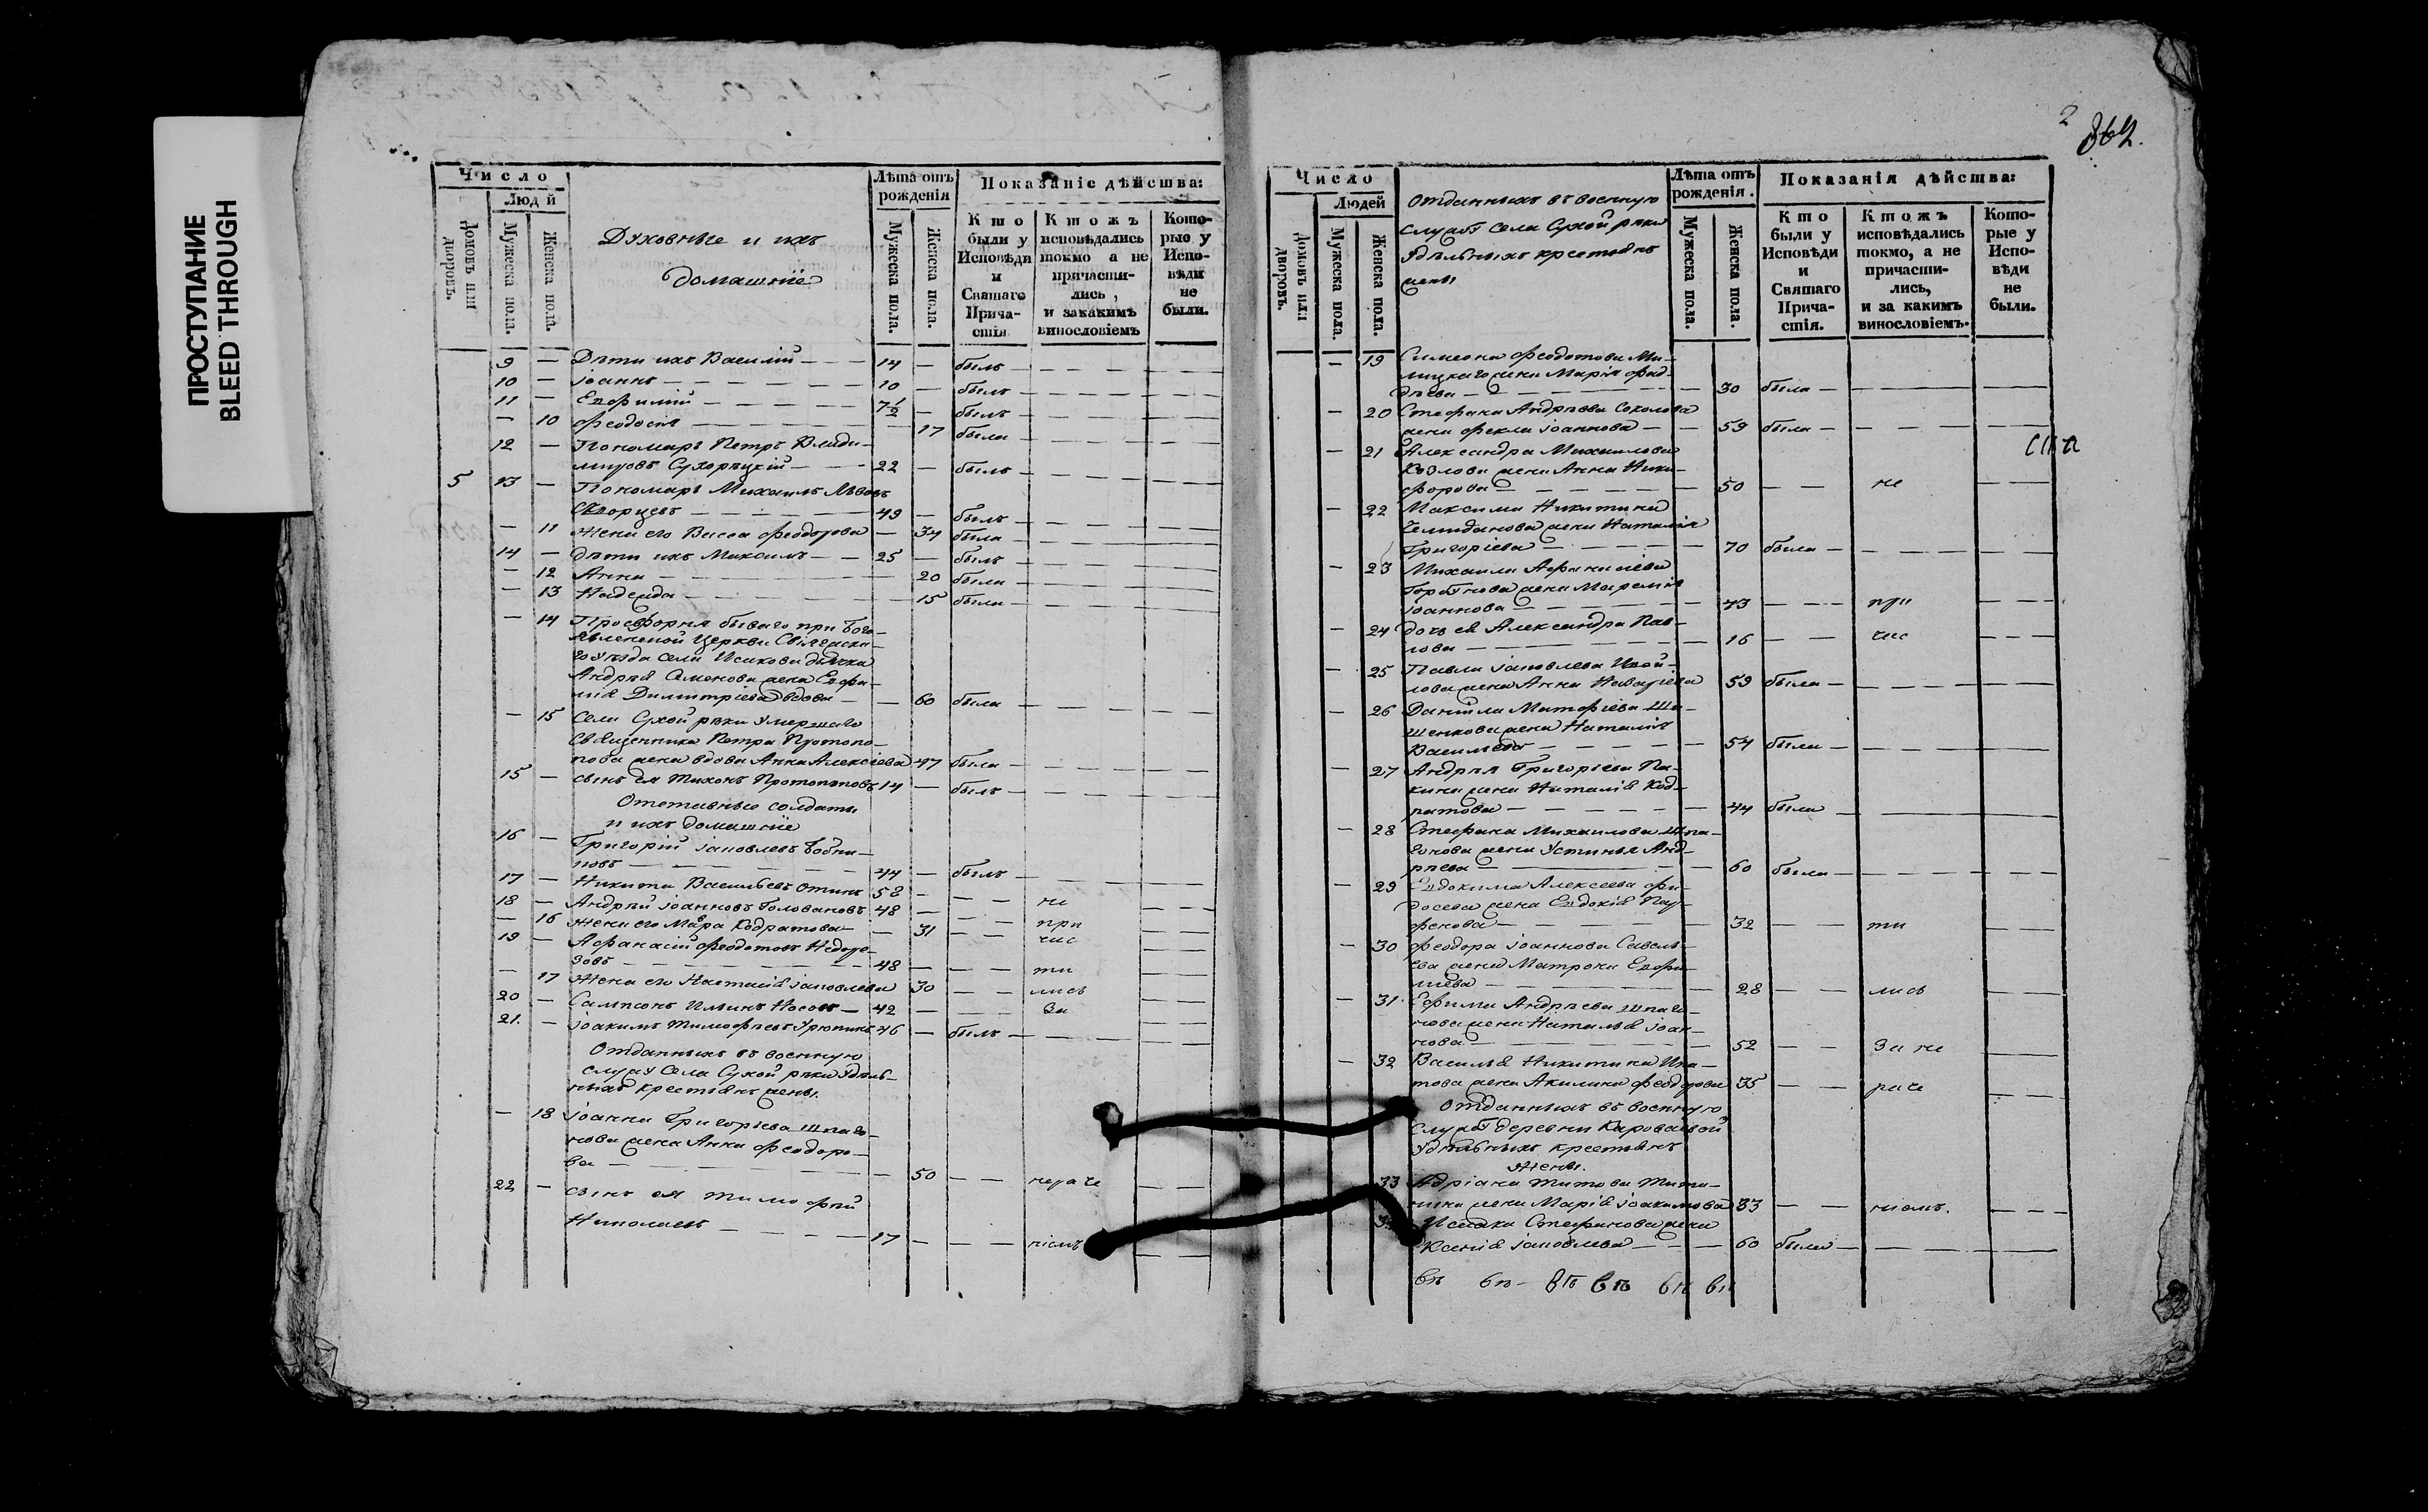 ПРОСТУПАНИЕ
BLEED THROUGH
Число
Людй
Домовъ или дворовъ.
Мужеска пола.
Женска пола.
Духовные и ихъ
домашніе
Лѣта отъ рожденія
Мужеска пола.
Женска пола.
Показаніе дѣйства:
Кто были у Исповѣди и Святаго Причастія
Ктожъ исповѣдались токмо а не причастились, и закакимъ винословіемъ
Которые у Исповѣди не были.
9 — Дѣти ихъ Василій — — 14 — былъ —
10 — Іоаннъ — — — 10 — былъ —
11 — Евфимій — — — 7½ — былъ —
— 10 Феодосія — — — 17 была —
12 — Пономарь Петръ Влади-
мировъ Сухорѣцкій — — 22 — былъ —
5 13 — Пономарь Михаилъ Львовъ
Скворцевъ — — — 49 — былъ —
— 11 Жена его Васса Феодорова — 34 была
14 — Дѣти ихъ Максимъ — — 25 — былъ —
— 12 Анна — — — 20 была —
— 13 Надежда — — — 15 была —
— 14 Просфорня бываго при Бого-
явленской Церкви Свіяжска-
го уѣзда села Исакова дьячка
Андрея Семенова жена Евфи-
мія Димитріева вдова — — 60 была
— 15 Села Сухой рѣки умершаго
Священника Петра Протопо-
пова жена вдова Анна Алексіева 47 была —
15 — сынъ ея Тихонъ Протопоповъ 14 — былъ —
Отставные солдаты
и ихъ домашніе
16 — Григорій Іаковлевъ
новъ — — — 44 — былъ —
17 — Никита Васильевъ 58 — — — не
18 — Андрей Іоанновъ Головановъ 48 — — — при
— 16 Жена его Мавра Кодратова — — 31 — — час
19 — Афанасій Феодотовъ
зовъ — — — 48 — — — ти
— 17 Жена его Настасія Іаковлева 30 — — лись
20 — Сампсонъ Ильинъ Носовъ — 42 — — — за
21. — Іоакимъ Тимофеевъ Урюпинъ 46 — былъ —
Отданныхъ въ военную
службу Села Сухой рѣки Удѣль-
ныхъ крестьянъ жены.
— 18 Іоанна Григоріева Шпаго-
нова жена Анна Феодоро-
ва — — — 50 — — нераче
22 — сынъ ея Тимофей
Николаевъ — — — 17 — — — ніемъ
2
862.
Число
Людей
Домовъ или дворовъ.
Мужеска пола.
Женска пола.
Отданныхъ въ военную
службу села Сухой рѣки
Удѣльныхъ крестьянъ
жены
Лѣта отъ рожденія.
Мужеска пола.
Женска пола.
Показанія дѣйства:
Кто были у Исповѣди и Святаго Причастія.
Ктожъ исповѣдались токмо, а не причастились, и за какимъ винословіемъ.
Которые у Исповѣди не были.
— 19 Симеона Феодотова Ми-
лицкаго жена Марія Фад-
дѣева — — — 30 была —
— 20 Стефана Андреева Соколова
жена Фекла Іоаннова — — 59 была —
— 21 Александра Михаилова
Козлова жена Анна Ники-
форова — — — 50 — — не
— 22 Максима Никитина
Чемиданова жена Наталія
Григоріева — — — 70 была —
— 23 Михаила Афанасіева
жена
Іоаннова — — — 43 — — при
— 24 дочь ея Александра Пав-
лова — — — 16 — — час
— 25 Павла Іаковлева
лова жена Анна 59 была —
— 26 Даніила Матфіева
щенкова жена Наталія
Васильева — — — 54 была —
— 27 Андрея Григоріева Па-
кина жена Наталія Код-
ратова — — — 44 была
— 28 Стефана Михаилова Шпа-
гонова жена Устинья Анд-
реева — — — 60 была —
— 29 Евдокима Алексеева Фи-
досева жена Евдокія Пар-
фенова — — — 32 — — ти
— 30 Феодора Іоаннова Савель-
ева жена Матрона Евфи-
міева — — — 28 — — лись
— 31 Ефима Андреева Шпаго-
нова жена Наталья Іоан-
нова — — — 52 — — за не
— 32 Василья Никитина Ипа-
това жена Акилина Феодорова 35 — — раче
Отданныхъ въ военную
службу деревни Караваевой
Удѣльныхъ крестьянъ
жены.
33 Адріана Титова Тита-
нина жена Марія Іоакимова 33 — — ніемъ.
34 Исаака Стефанова жена
Ксенія Іаковлева — — — 60 была —